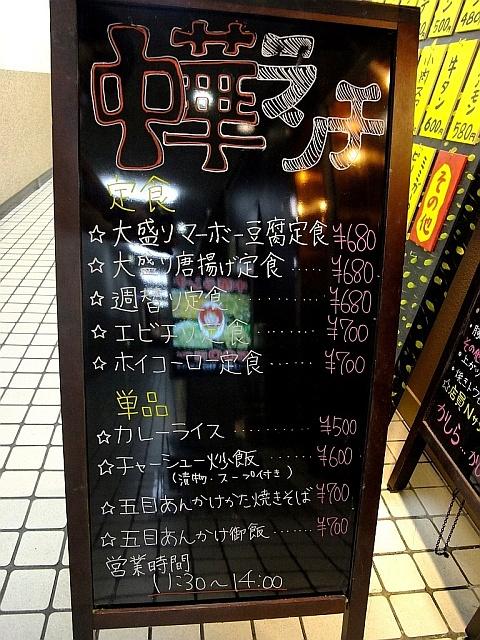 中華ランチ
定食
☆大盛りマーボー豆腐定食 ¥680
☆大盛り唐揚げ定食 ‥‥‥ ¥680
☆週替り定食 ‥‥‥‥‥ ¥680
☆エビチリ定食 ‥‥‥‥ ¥700
☆ホイコーロ定食 ‥‥‥ ¥700
単品
☆カレーライス ‥‥‥‥ ¥500
☆チャーシュー炒飯 ‥‥‥ ¥600
(漬物・スープ付き)
☆五目あんかけかた焼きそば ¥700
☆五目あんかけ御飯 ‥‥‥ ¥700
営業時間
11:30〜14:00
牛タン
600円
580円
その他